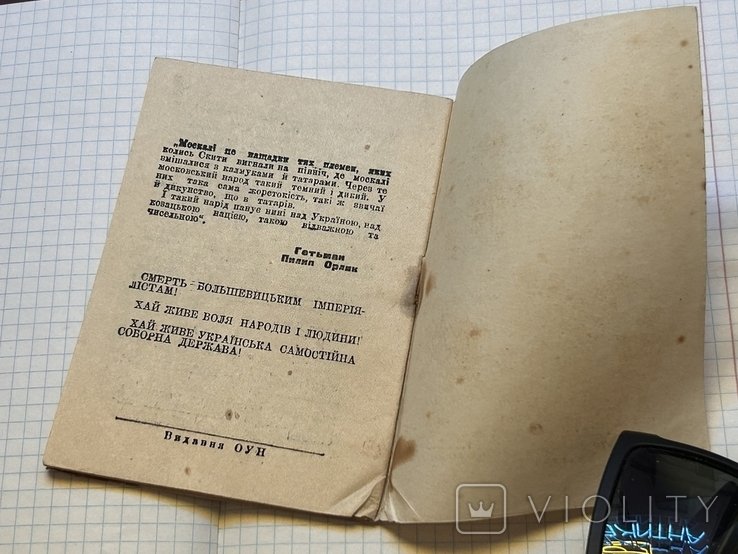 „Москалі це нащадки тих племен, яких
колись Скити вигнали на північ, де москалі
вмішалися з калмуками й татарами. Через те
московський народ такий темний і дикий. У
них така сама жорстокість, такі ж звичаї
й дикунство, що в татарів.
І такий нарід панує нині над Україною, над
козацькою нацією, такою відважною та
чисельною“.
Гетьман
Пилип Орлик
СМЕРТЬ БОЛЬШЕВИЦЬКИМ ІМПЕРІЯ-
ЛІСТАМ!
ХАЙ ЖИВЕ ВОЛЯ НАРОДІВ І ЛЮДИНИ!
ХАЙ ЖИВЕ УКРАЇНСЬКА САМОСТІЙНА
СОБОРНА ДЕРЖАВА!
Видавня ОУН
VIOLITY
АНТИКВ